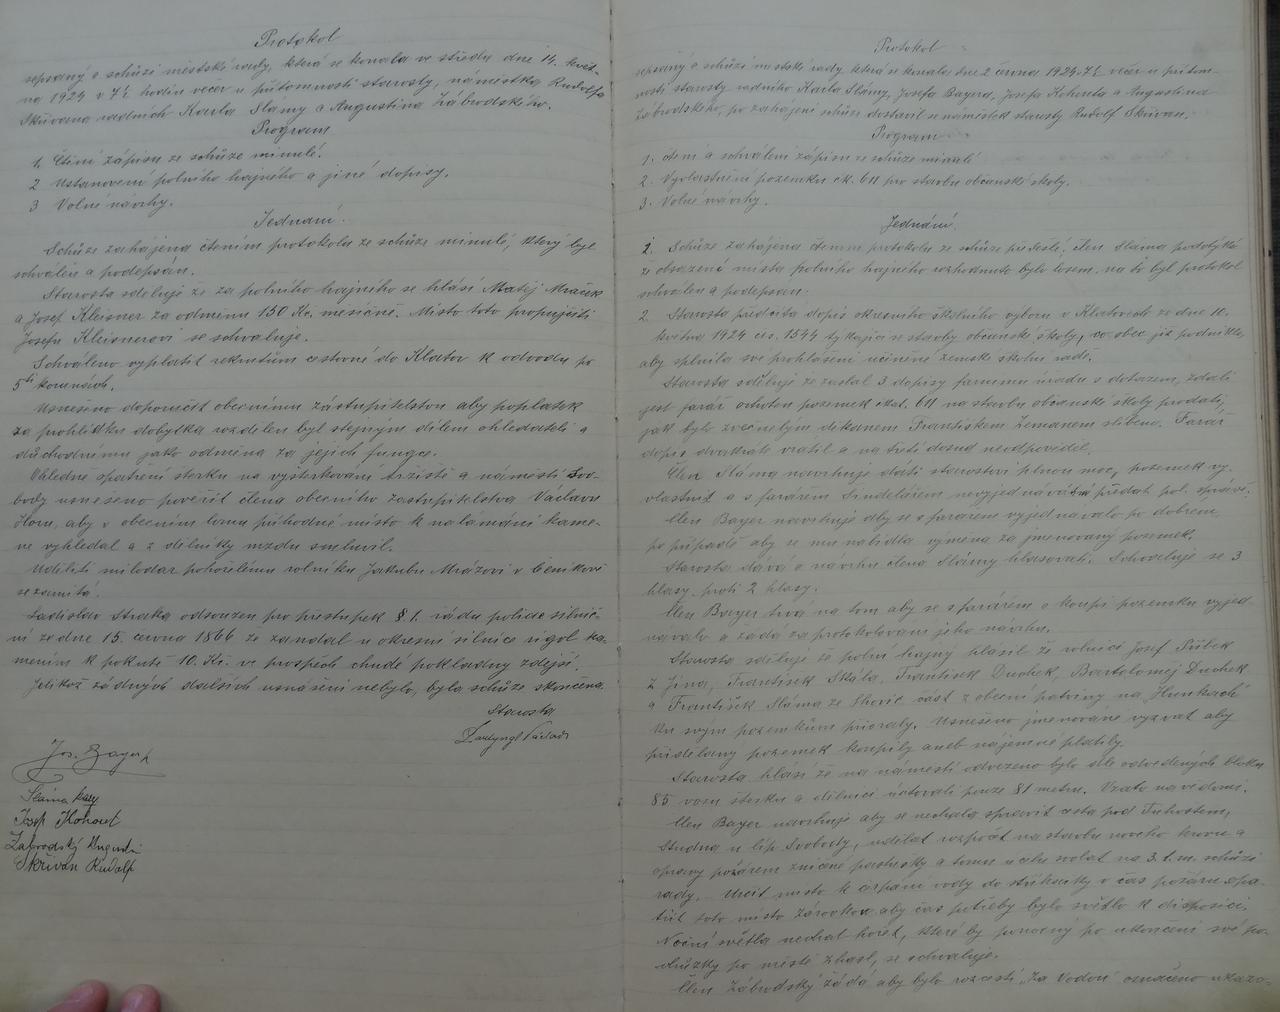 Protokol
sepsaný o schůzi městské rady, která se konala ve středu dne 14. květ-
na 1924 v 7½ hodin večer u přítomnosti starosty, náměstka Rudolfa
Skřivana radních Karla Slámy a Augustina Zábrodského.
Program
1. Čtení zápisu ze schůze minulé.
2 Ustanovení polního hajného a jiné dopisy.
3 Volné návrhy.
Jednání.
Schůze zahájena čtením protokolu ze schůze minulé, který byl
schválen a podepsán.
Starosta sděluje že za polního hajného se hlásí Matěj Mraček
a Josef Kleisner za odměnu 150 Kč. měsíčně. Místo toto propůjčiti
Josefu Kleisnerovi se schvaluje.
Schváleno vyplatit rekrutům cestovné do Klatov k odvodu po
5ti korunách.
Usnešeno doporučit obecnímu zástupitelstvu aby poplatek
za prohlídku dobytka rozdělen byl stejným dílem ohledateli a
důchodnímu jako odměna za jejich funkce.
Ohledně opatření štěrku na vyštěrkování tržiště a náměstí Svo-
body usnešeno pověřit člena obecního zastupitelstva Václava
aby v obecním lomu příhodné místo k nalámání kame-
ne vyhledal a z dělníky mzdu smluvil.
Uděliti milodar pohořelému rolníku Jakubu Mrázovi v Čeníkově
se zamítá.
Ladislav Straka odsouzen pro přestupek § 1. řádu policie silnič-
ní ze dne 15. června 1866 že zandal u okresní silnice rigol ka-
mením k pokutě 10. Kč. ve prospěch chudé pokladny zdejší.
Jelikož žádných dalších usnášení nebylo, byla schůze skončena.
Starosta
Václav
Jos. Bayer
Sláma Karel
Josef Kohout
Zábrodský Augustin
Skřivan Rudolf
Protokol
sepsaný o schůzi městské rady, která se konala dne 2 června 1924 v 7½ večer u přítom-
nosti starosty radního Karla Slámy, Josefa Bayera, Josefa Kohouta a Augustina
Zábrodského, po zahájení schůze dostavil se náměstek starosty Rudolf Skřivan.
Program
1. čtení a schválení zápisu ze schůze minulé
2. Vyvlastnění pozemku čk. 611 pro stavbu občanské školy.
3. Volné návrhy.
Jednání.
1. Schůze zahájena čtením protokolu ze schůze předešlé, člen Sláma podotýká
že obsazení místa polního hajného rozhodnuto bylo losem, na to byl protokol
schválen a podepsán.
2. Starosta předčítá dopis okresního školního výboru v Klatovech ze dne 10.
května 1924 čís. 1544 týkající se stavby občanské školy, co obec již podnikla,
aby splnila své prohlášení učiněné zemské školní radě.
Starosta sděluje že zaslal 3 dopisy farnímu úřadu s dotazem, zdali
jest farář ochoten pozemek čkat. 611 na stavbu občanské školy prodati,
jak bylo zvěčnělým děkanem Františkem Zemanem slíbeno. Farář
dopis dvakrát vrátil a na třetí dosud neodpověděl.
Člen Sláma navrhuje dáti starostovi plnou moc, pozemek vy-
vlastnit a s farářem Šindelářem předat pol. správě.
Člen Bayer navrhuje aby se s farářem vyjednávalo po dobrém,
po případě aby se mu nabídla výměna za jmenovaný pozemek.
Starosta dává o návrhu člena Slámy hlasovati. Schvaluje se 3
hlasy proti 2 hlasy.
Člen Bayer trvá na tom aby se s farářem o koupi pozemku vyjed-
návalo a žádá za protokolování jeho návrhu.
Starosta sděluje že polní hajný hlásil že rolníci Josef
z Jína, František Skála, František Duchek, Bartoloměj Duchek
a František Sláma ze Slovic část z obecní pastviny na
ku svým pozemkům přiorali. Usnešeno jmenované vyzvat aby
přidělaný pozemek koupily aneb nájemné platily.
Starosta hlásí že na náměstí odvezeno bylo dle odvedených bloků
85 vozů štěrku a dělníci účtovali pouze 81 metrů. Vzato na vědomí.
Člen Bayer navrhuje aby se nechala spravit cesta pod
Studna u líp Svobody, udělat rozpočet na stavbu nového krovu a
opravy požárem zničené pastušky a tomu účelu svolat na 3. t. m. schůzi
rady. Určit místo k čerpání vody do stříkačky v čas požáru opa-
třit toto místo žárovkou aby čas potřeby bylo světlo k disposici.
Noční světla nechat hořet, které by ponocný po ukončení své po-
chůzky po městě zhasl, se schvaluje.
Člen Zábrodský žádá aby bylo rozcestí „Za Vodou" označeno ukazo-